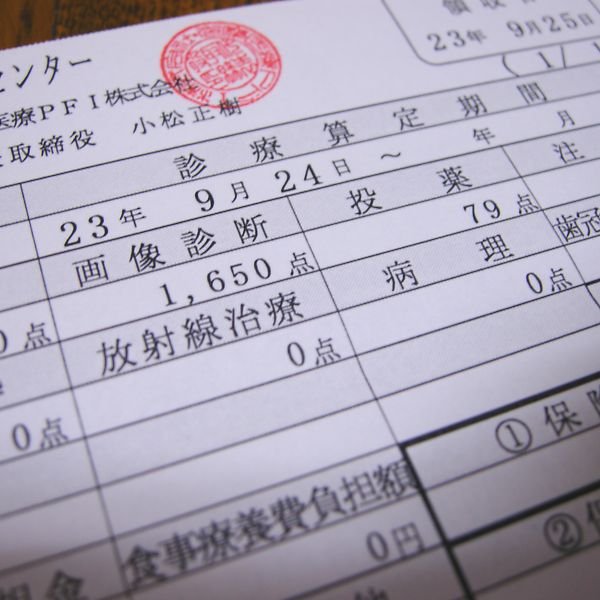 センター
領収
23年 9月25日
医療PFI株式会社
(1/1
取締役 小松正樹
診療算定期間
23年 9月24日 ～ 年 月
画像診断 投薬 注
1,650点 79点
0点 放射線治療 病理 歯冠
0点 0点
0点
① 保険
食事療養費負担額
0円 ② 保
担金